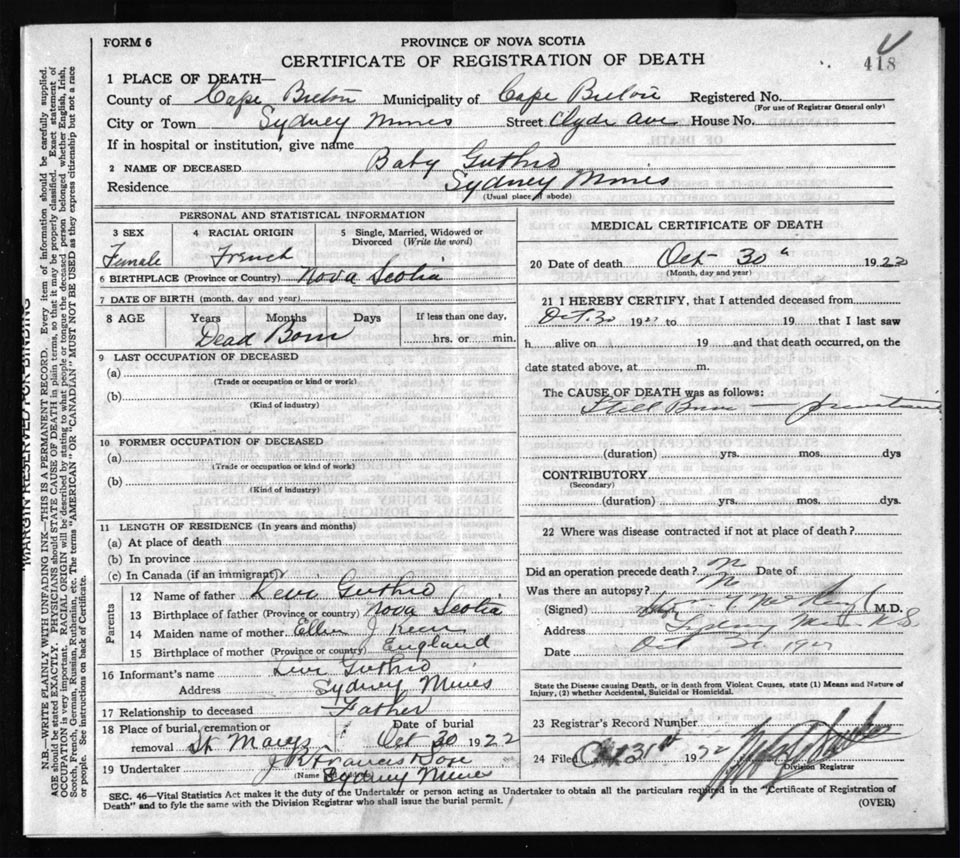 FORM 6
PROVINCE OF NOVA SCOTIA
CERTIFICATE OF REGISTRATION OF DEATH
418
1 PLACE OF DEATH—
County of Cape Breton Municipality of Cape Breton Registered No.
(For use of Registrar General only)
City or Town Sydney Mines Street Clyde Ave House No.
If in hospital or institution, give name
2 NAME OF DECEASED Baby Guthro
Residence Sydney Mines
(Usual place of abode)
PERSONAL AND STATISTICAL INFORMATION
3 SEX 4 RACIAL ORIGIN 5 Single, Married, Widowed or Divorced (Write the word)
Female French
6 BIRTHPLACE (Province or Country) Nova Scotia
7 DATE OF BIRTH (month, day and year)
8 AGE Years Months Days If less than one day,
Dead Born hrs. or min.
9 LAST OCCUPATION OF DECEASED
(a)
(Trade or occupation or kind or work)
(b)
(Kind of industry)
10 FORMER OCCUPATION OF DECEASED
(a)
(Trade or occupation or kind of work)
(b)
(Kind of industry)
11 LENGTH OF RESIDENCE (In years and months)
(a) At place of death
(b) In province
(c) In Canada (if an immigrant)
Parents
12 Name of father Levi Guthro
13 Birthplace of father (Province or country) Nova Scotia
14 Maiden name of mother Ellen J
15 Birthplace of mother (Province or country) England
16 Informant's name Levi Guthro
Address Sydney Mines
17 Relationship to deceased Father
18 Place of burial, cremation or Date of burial
removal St Marys Oct 30 1922
19 Undertaker Francis
(Name Sydney Mines
MEDICAL CERTIFICATE OF DEATH
20 Date of death Oct 30 1922
(Month, day and year)
21 I HEREBY CERTIFY, that I attended deceased from
Oct. 30 19 to 19 that I last saw
h alive on 19 and that death occurred, on the
date stated above, at m.
The CAUSE OF DEATH was as follows:
Still Born —
(duration) yrs. mos. dys
CONTRIBUTORY
(Secondary)
(duration) yrs. mos. dys.
22 Where was disease contracted if not at place of death?
Did an operation precede death? No Date of
Was there an autopsy? No
(Signed) M.D.
Address Sydney Mines N.S.
Date Oct
State the Disease causing Death, or in death from Violent Causes, state (1) Means and Nature of
Injury, (2) whether Accidental, Suicidal or Homicidal.
23 Registrar's Record Number
24 Filed Oct 31st 1922
Division Registrar
SEC. 46—Vital Statistics Act makes it the duty of the Undertaker or person acting as Undertaker to obtain all the particulars required in the "Certificate of Registration of
Death" and to fyle the same with the Division Registrar who shall issue the burial permit.
(OVER)
MARGIN RESERVED FOR BINDING
N.B.—WRITE PLAINLY WITH UNFADING INK—THIS IS A PERMANENT RECORD. Every item of information should be carefully supplied.
AGE should be stated EXACTLY. PHYSICIANS should STATE CAUSE OF DEATH in plain terms, so that it may be properly classified. Exact statement of
OCCUPATION is very important. RACIAL ORIGIN will be described by stating to what people or tongue the deceased person belonged whether English, Irish,
Scotch, French, German, Russian, Ruthenian, etc. The terms "AMERICAN" OR "CANADIAN" MUST NOT BE USED as they express citizenship but not a race
or people. See instructions on back of Certificate.